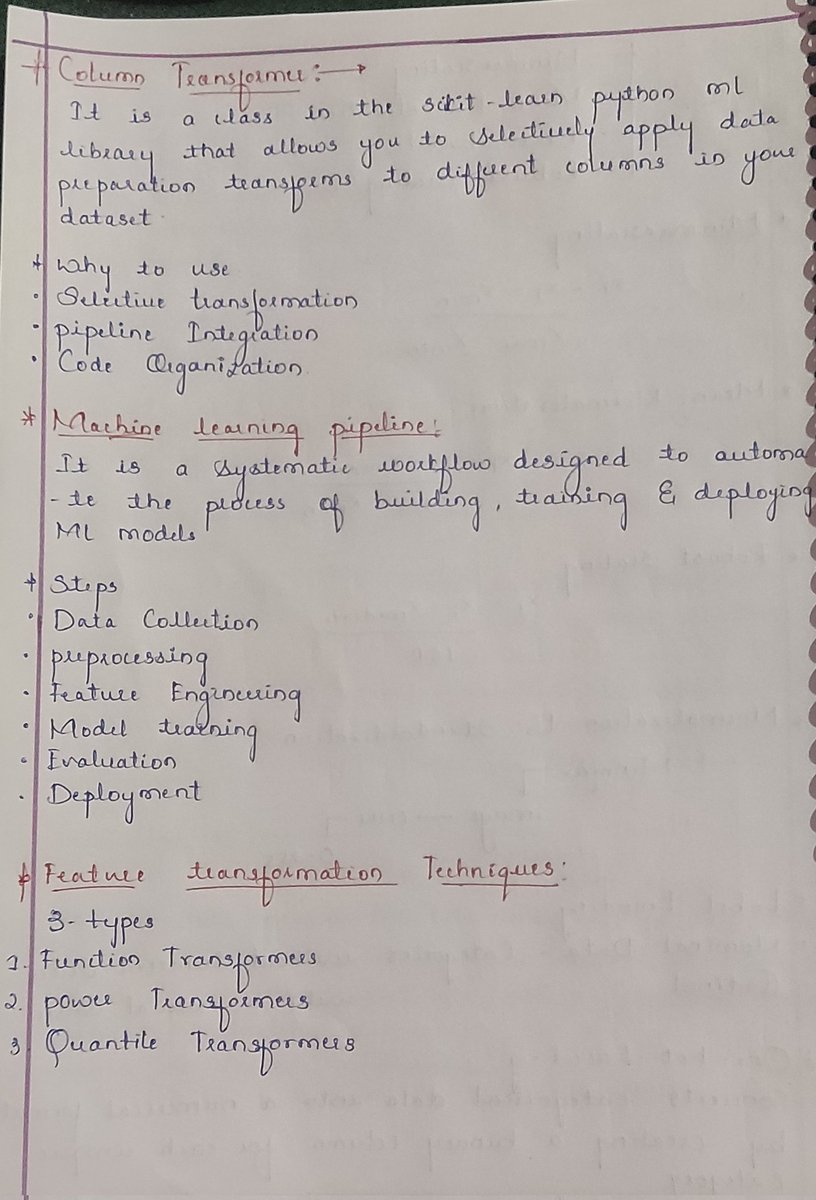 * Column Transformer:→
It is a class in the scikit-learn python ml
library that allows you to selectively apply data
preparation transforms to different columns in your
dataset.
* Why to use
• Selective transformation
• pipeline Integration
• Code Organization
* Machine learning pipeline:
It is a systematic workflow designed to automa
-te the process of building, training & deploying
ML models
* Steps
• Data Collection
• preprocessing
• Feature Engineering
• Model training
• Evaluation
• Deployment
* Feature transformation Techniques:
3-types
1. Function Transformers
2. power Transformers
3 Quantile Transformers